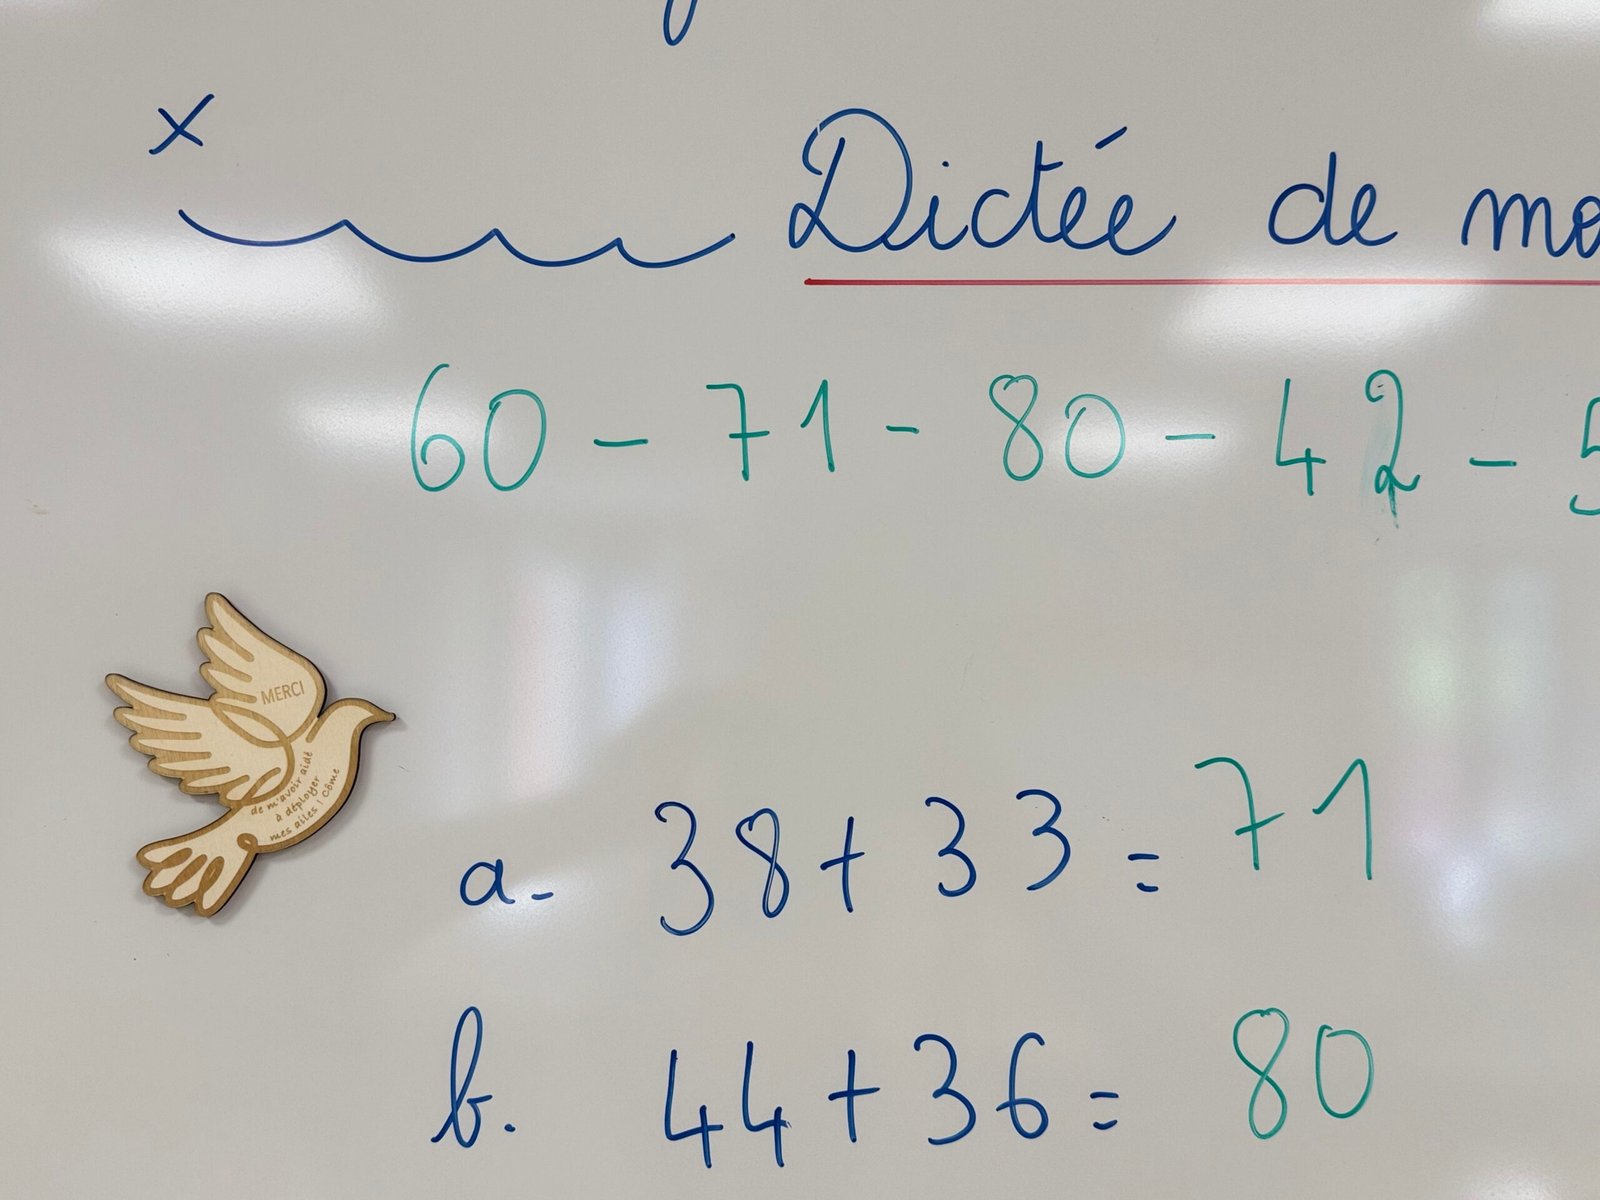 x
Dictée de mo
60 - 71 - 80 - 42 - 5
MERCI
de m'avoir aidé
à déployer
mes ailes ! Côme
a- 38 + 33 = 71
b. 44 + 36 = 80